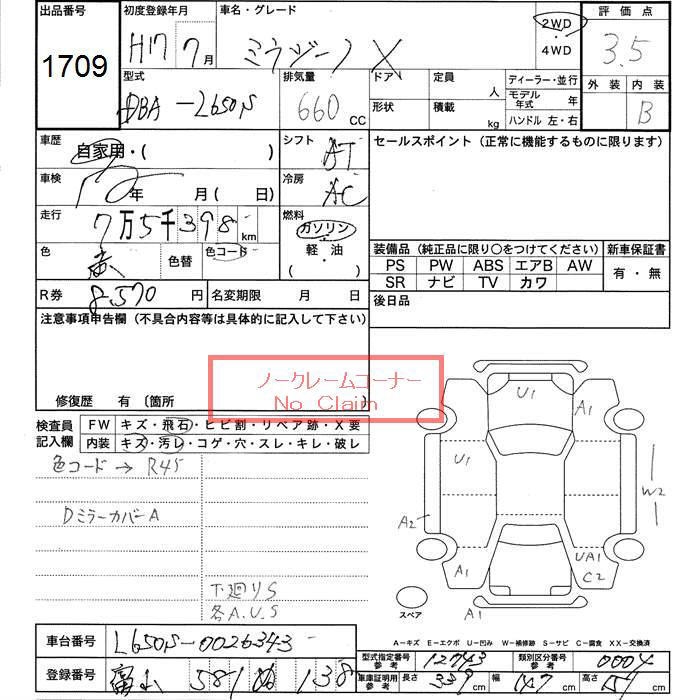 出品番号 初度登録年月 車名・グレード 評価点
1709 H17 7月 ミラジーノ X 2WD・4WD 3.5
型式 排気量 ドア 定員 人 ディーラー・並行 外装 内装
DBA-L650S 660 CC 形状 積載 kg モデル年式 年 ハンドル 左・右 B
車歴 自家用・( ) シフト AT セールスポイント(正常に機能するものに限ります)
車検 年 月( 日) 冷房 AC
走行 7万5千398km 燃料 ガソリン
色 赤 色替 色コード 軽・油 ( ・ )
装備品(純正品に限り○をつけてください) 新車保証書
PS PW ABS エアB AW 有・無
SR ナビ TV カワ
R券 8,570円 名変期限 月 日 後日品
注意事項申告欄(不具合内容等は具体的に記入して下さい)
ノークレームコーナー
No Claim
修復歴 有 〔箇所
検査員記入欄 FW キズ・飛石・ヒビ割・リペア跡・X要
内装 キズ・汚レ・コゲ・穴・スレ・キレ・破レ
色コード→R45
DミラーカバーA
下廻りS
各A.U.S
U1 A1
U1 W2
A2
A1 UA1 C2
スペア A1
A-キズ E-エクボ U-凹み W-補修跡 S-サビ C-腐食 XX-交換済
車台番号 L650S-0026343 型式指定番号 参考 12743 類別区分番号 参考 0004
登録番号 富山 581 ぬ 138 車庫証明用 参考 長さ 339cm 幅 147cm 高さ 151cm